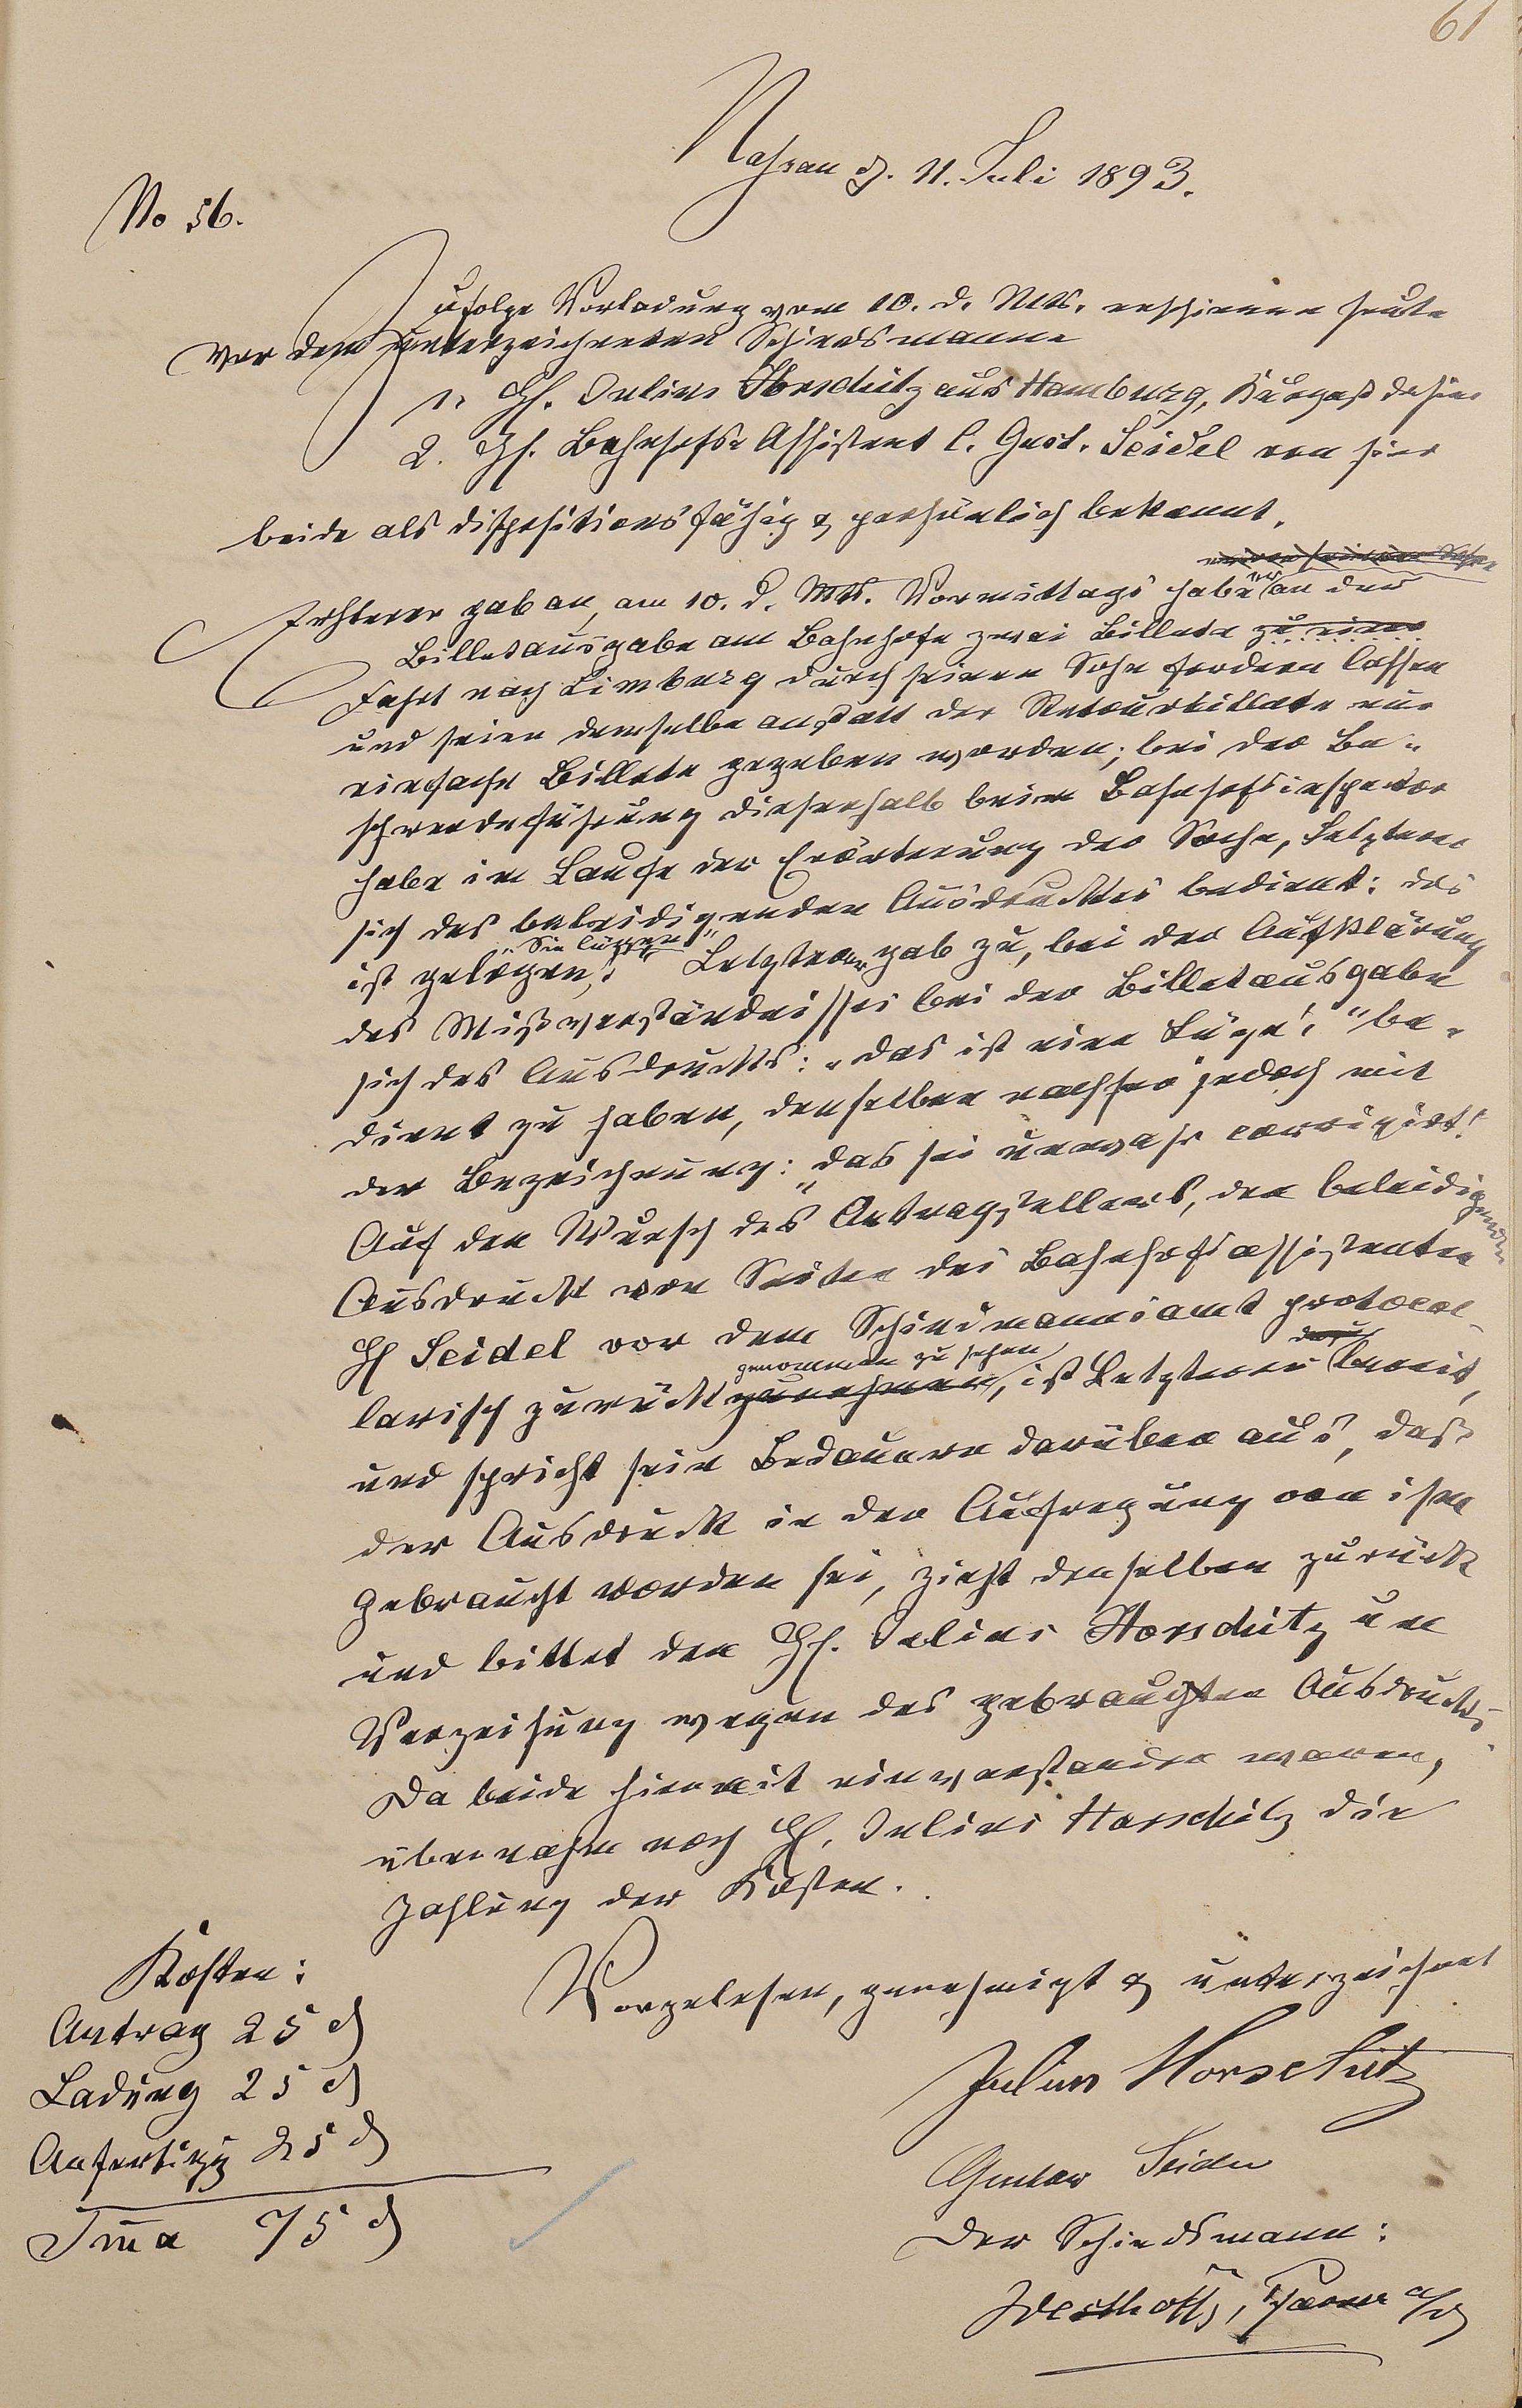 61
Nassau d. 11. Juli 1893.
No 56.
Zufolge Vorladung vom 10. d. Mts. erschienen heute
vor dem unterzeichneten Schiedsmanne
1. H. Julius Horschütz aus Hamburg, Kurgast dahier
2. H. Bahnhofs-Assistent C. Gust. Seidel von hier
beide als dispositionsfähig & persönlich bekannt.
Ersterer gab an, am 10. d. Mts. Vormittags habe er an der
Billetausgabe am Bahnhofe zwei Billete zu einer
Fahrt nach Limburg durch seinen Sohn fordern lassen
und seien demselben anstatt der Retourbillete nur
einfache Billete gegeben worden; bei der Be-
schwerdeführung dieserhalb beim Bahnhofsinspector
habe im Laufe der Erörterung der Sache, Letzterer
sich des beleidigenden Ausdruckes bedient: das
"Sie lügen"
ist gelogen;" Letzterer gab zu, bei der Aufklärung
des Mißverständnisses bei der Billetausgabe
sich des Ausdrucks: "das ist eine Lüge!" be-
dient zu haben, denselben nachher jedoch mit
der Bezeichnung: "das sei unwahr corrigirt!
Auf den Wunsch des Antragstellers, den beleidigenden
Ausdruck von Seiten des Bahnhofsassistenten
H Seidel vor dem Schiedsmannsamt protocol-
genommen zu sehen
larisch zurück zunehmen, ist Letzterer dazu bereit,
und spricht sein Bedauern darüber aus, daß
der Ausdruck in der Aufregung von ihm
gebraucht worden sei, zieht denselben zurück
und bittet den H. Julius Horschütz um
Verzeihung wegen des gebrauchten Ausdrucks.
Da beide hiermit einverstanden waren,
übernahm noch H. Julius Horschütz die
Zahlung der Kosten.
Vorgelesen, genehmigt & unterzeichnet
Julius Horschütz
Gustav Seidel
Der Schiedsmann:
Westhoff, a/D
Kosten:
Antrag 25 d
Ladung 25 d
Anfertigg 25 d
Sma 75 d